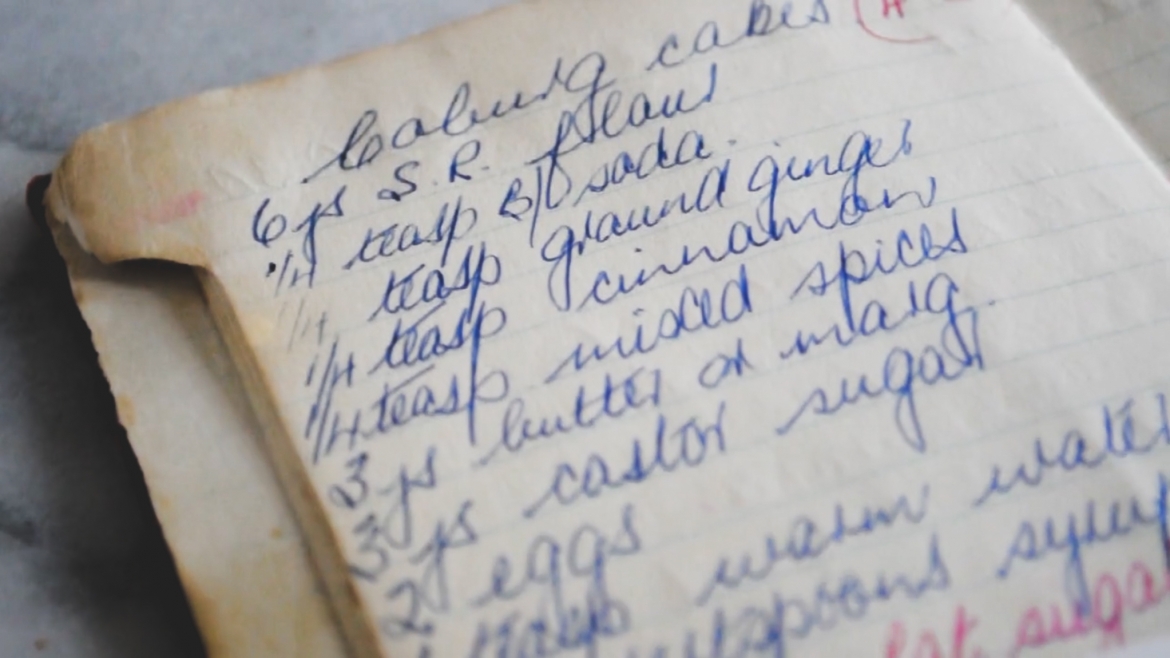 Coburg cakes
6 ozs S.R. flour
1/4 teasp B/C soda.
1/4 teasp ground ginger
1/4 teasp cinnamon
1/4 teasp mixed spices
3 ozs butter or marg.
3 ozs castor sugar
2 eggs
teasp warm water
syrup
sugar